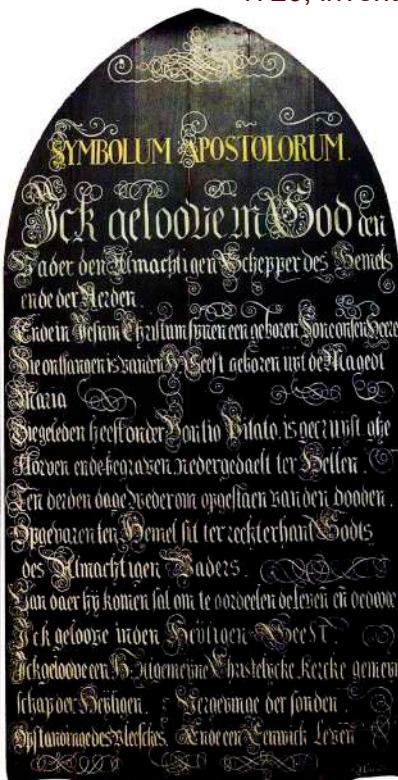 1720, invent
SYMBOLUM APOSTOLORUM.
Ick geloove in God den
Vader den Almachtigen Schepper des Hemels
ende der Aerden
Ende in Jesum Christum synen een geboren Sone onsen Heere
Die onfangen is vanden H. Geest geboren uyt de Maget
Maria
Die geleden heeft onder Pontio Pilato, is gecruyst, ghe
storven ende begraven, nedergedaelt ter Hellen.
Ten derden dage wederom opgestaen van den dooden.
Opgevaren ten Hemel sit ter rechterhant Godts
des Almachtigen Vaders.
Van daer hy komen sal om te oordeelen de leven en de doode
Ick geloove inden Heyligen Geest.
Ick geloove een H. Algemeyne Christelycke Kercke gemeyn
schap der Heyligen. Vergevinge der sonden.
Opstandinge des Vleesches. Ende een Eeuwich Leven